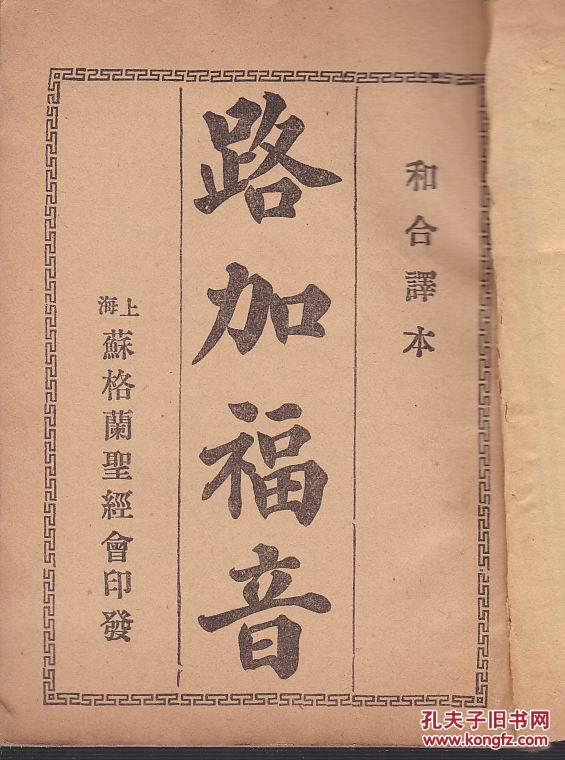 和合譯本
路加福音
上海
蘇格蘭聖經會印發
孔夫子旧书网
www.kongfz.com